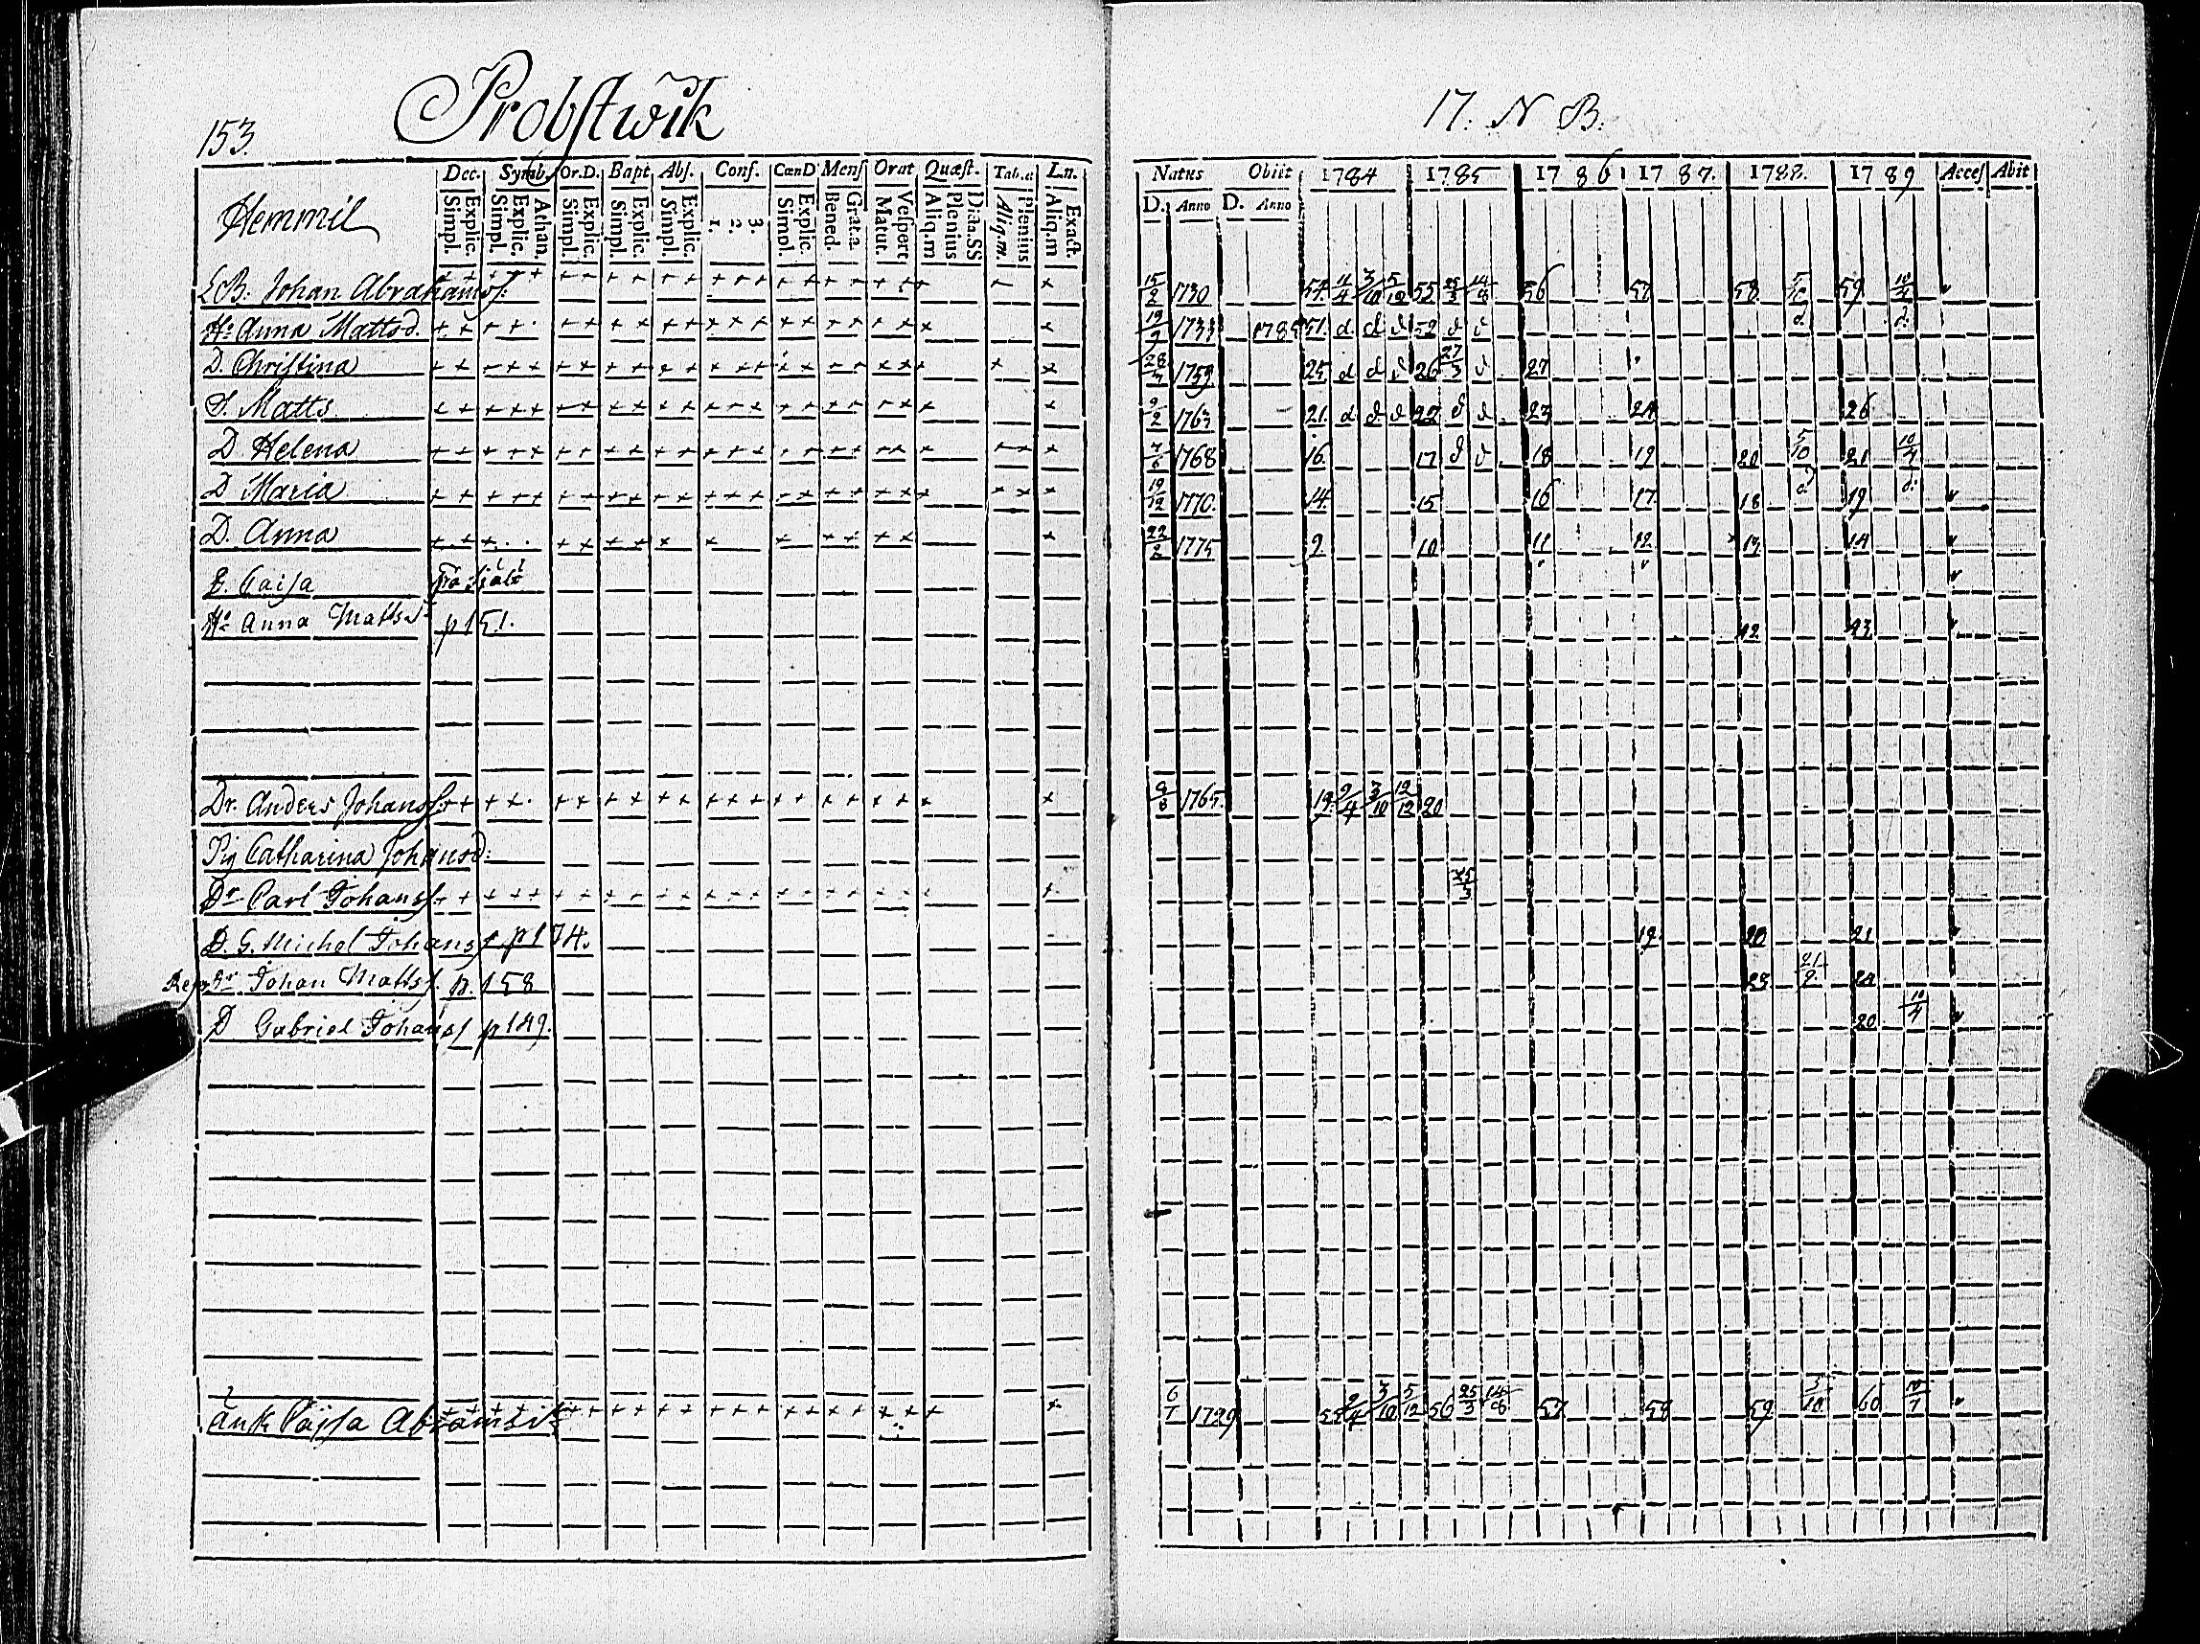 153.
Probstwik
17. N B.
Dec. Symb. Or.D. Bapt Abs. Conf. CœnD Menſ Orat Quæst. Tab.œ L.n.
Simpl. Explic. Simpl. Explic. Athan. Simpl. Explic. Simpl. Explic. Simpl. Explic. 1. 2. 3. Simpl. Explic. Bened. Grat.a. Matut. Veſpert Aliq.m Plenius Dicta.SS Aliq.m. Plenius Aliq.m Exact.
Natus Obiit 1784 1785 1786 1787. 1788. 1789 Acceſ Abit
D. Anno D. Anno
Hemmil
LB: Johan Abrahamsſ: + + + + + + + + + + + + + + + + + + + + + + 15/2 1730 54. 4/4 3/10 5/12 55 25/3 14/8 56 57 58 5/10 59 10/4
Hu Anna Mattsd. 19/9 1733 1785 51. d. d. d 52 d d d. d.
D. Christina 1759 25. d d d 26 27/3 d 27
S. Matts 9/2 1763 21. d d. d 22 d d 23 24 26
D Helena 7/6 1768 16. 17 d d 18 19 20 5/10 21 10/4
D Maria 19/12 1770. 14. 15 16 17. 18 d. 19 d.
D. Anna 22/2 1775 9. 10 11 12 13 14
E. Caisa
Hu Anna Mattsd p 151. 42. 43
Dr. Anders Johansſ: 1765. 19. 9/4 3/10 12/12 20
Pig Catharina Johansd:
Dr Carl Johansſ. 25/3
D. G. Michel Johansſ. p 174. 19. 20 21
Dr. Johan Mattsſ. p. 158 23 21/9. 24
D Gabriel Johansſ p 149. 20 10/4
Änk Cajsa Abramsd. 6/7 1729 55 9/4 3/10 5/12 56 25/3 14/8 57 58 59 5/10 60